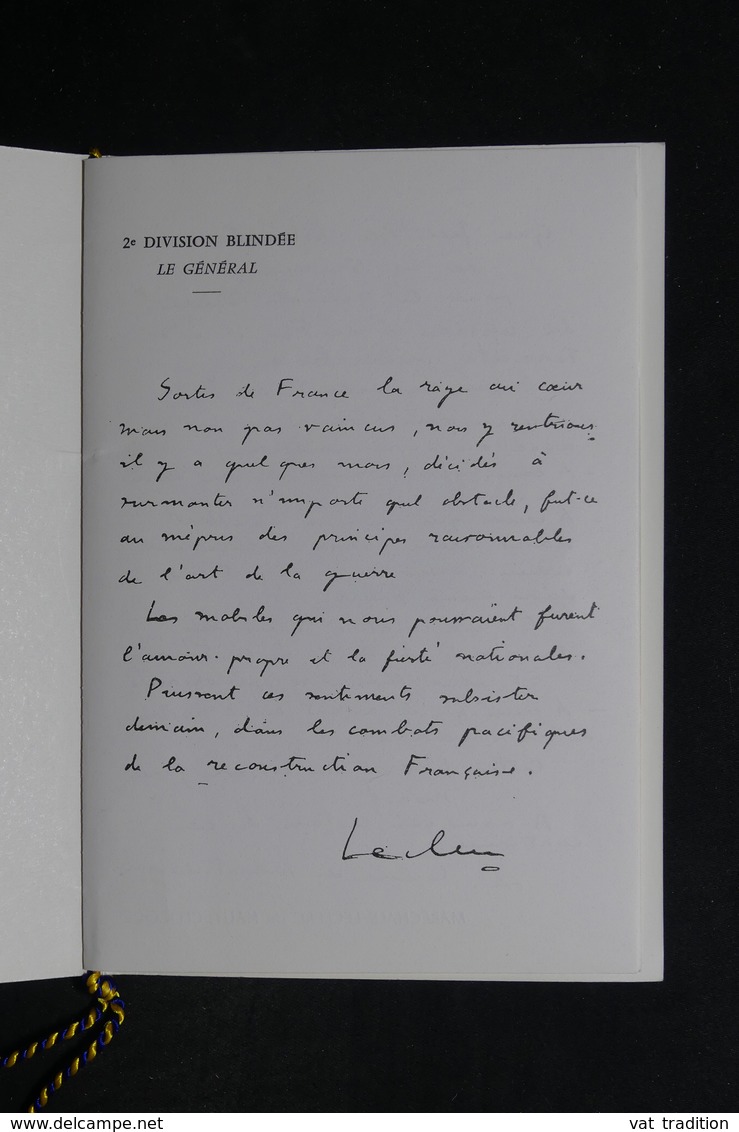 2e DIVISION BLINDÉE
LE GÉNÉRAL
Sortis de France la rage au cœur
mais non pas vaincus, nous y rentrions
il y a quelques mois, décidés à
surmonter n'importe quel obstacle, fut-ce
au mépris des principes raisonnables
de l'art de la guerre
Les mobiles qui nous poussaient furent
l'amour-propre et la fierté nationales.
Puissent ces sentiments subsister
demain, dans les combats pacifiques
de la reconstruction Française.
Leclerc
www.delcampe.net
vat tradition